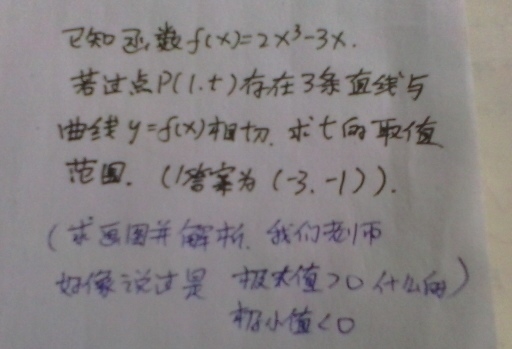 已知函数f(x)=2x³-3x.
若过点P(1.t)存在3条直线与
曲线y=f(x)相切.求t的取值
范围.(答案为(-3.-1)).
(求画图并解析.我们老师
好像说过是 极大值>0 什么的)
极小值<0